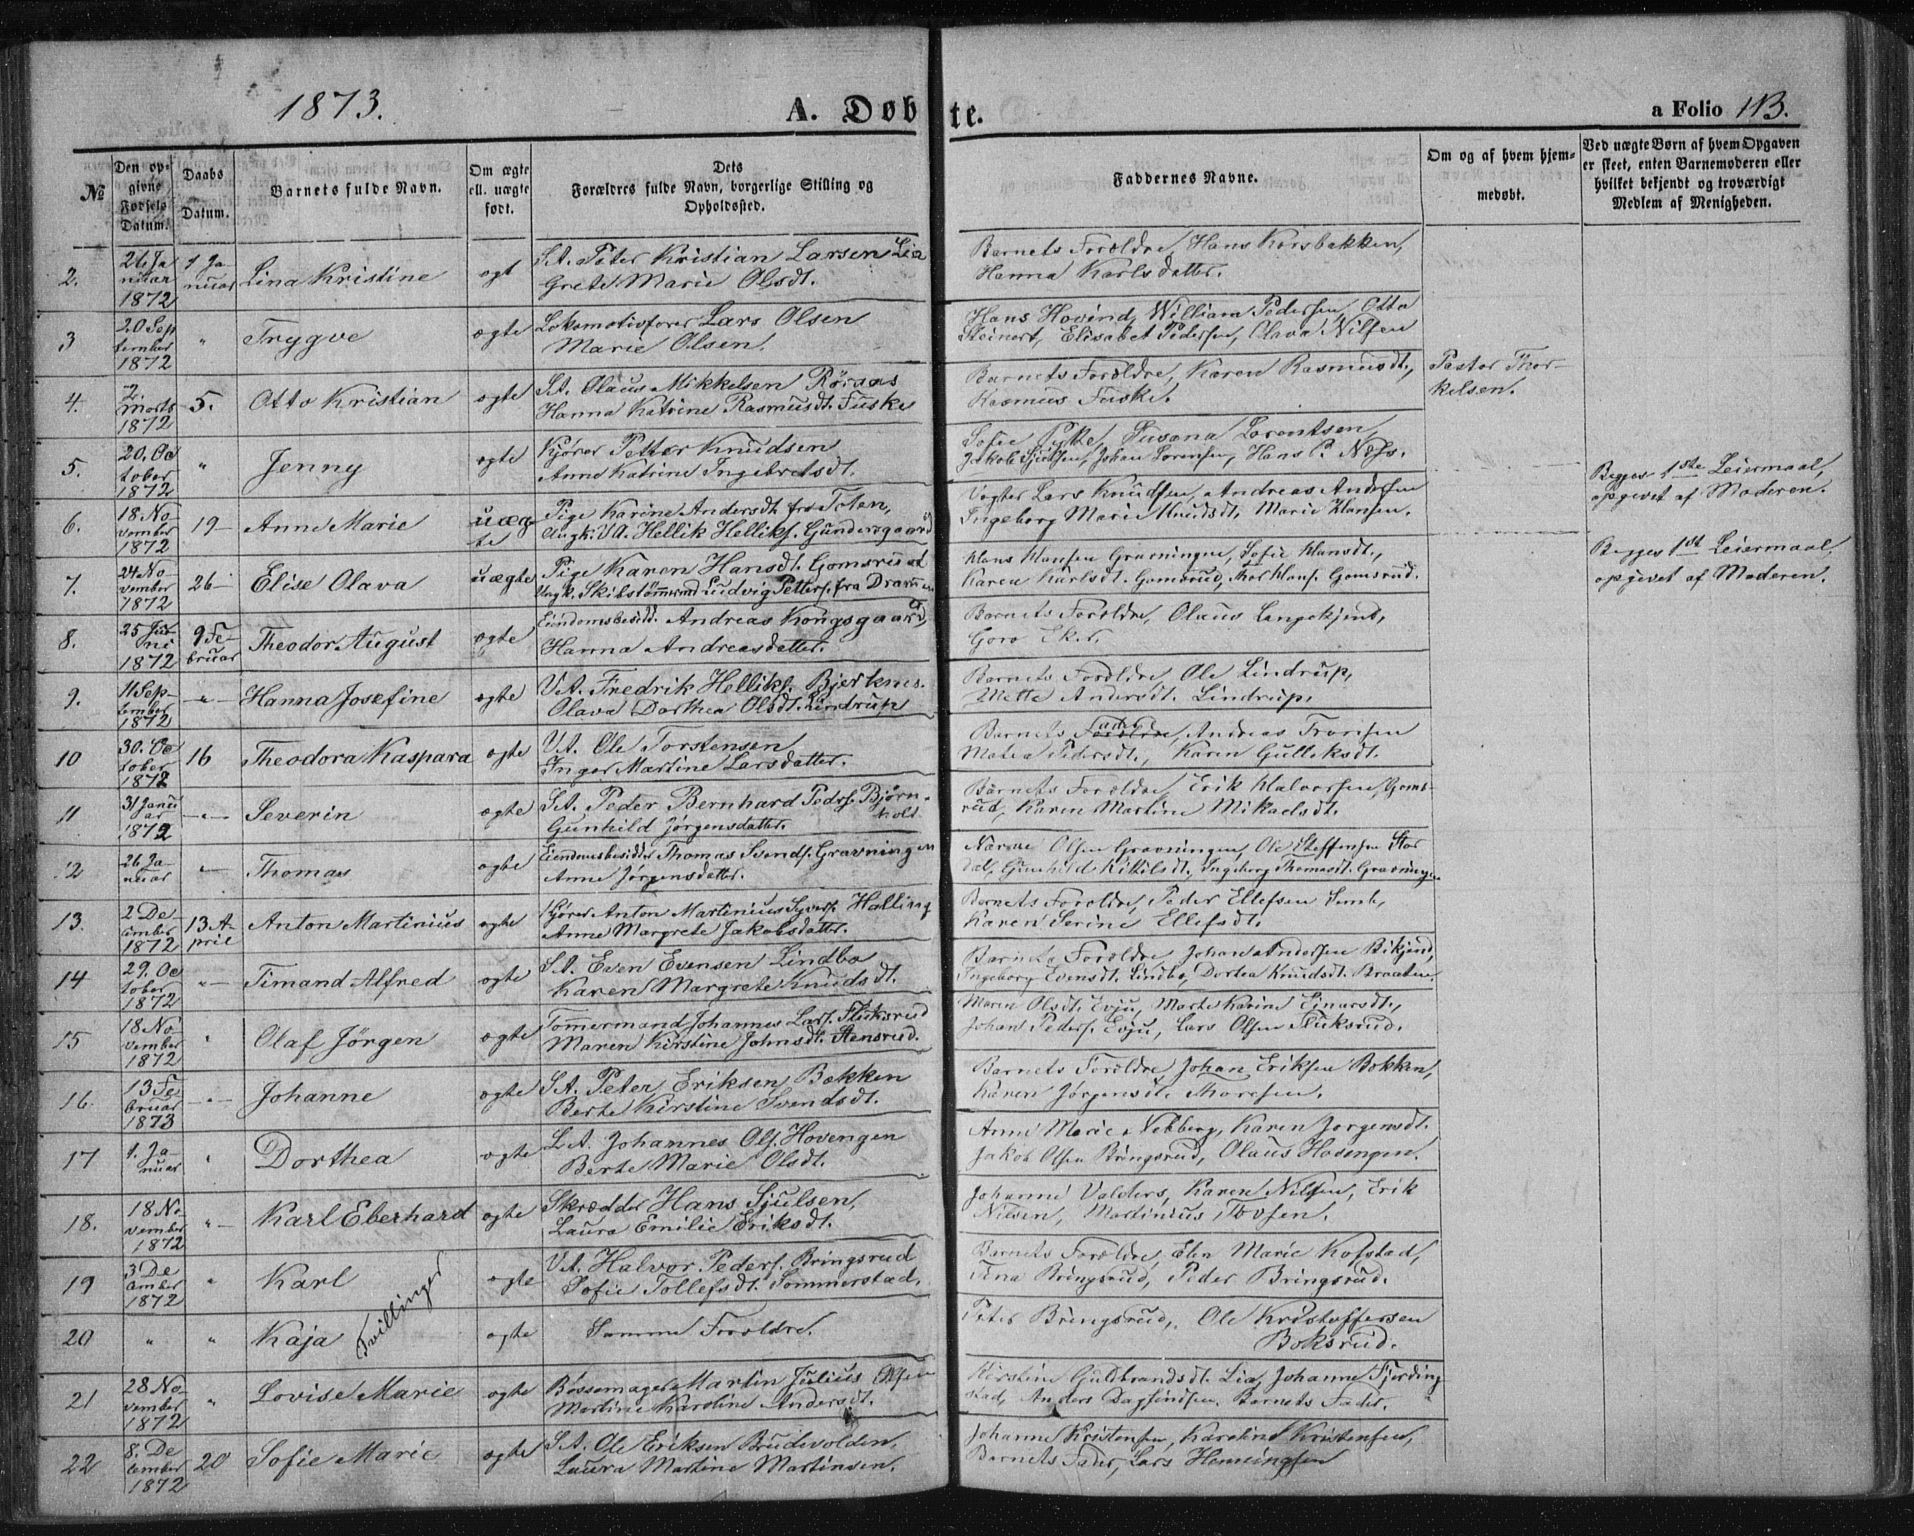 1873.
A. Døbte.
a Folio 113.
No
Den opgivne Fødsels Datum.
Daabs Datum.
Barnets fulde Navn.
Om ægte ell. uægte født.
Dets Forældres fulde Navn, borgerlige Stilling og Opholdssted.
Faddernes Navne.
Om og af hvem hjemmedøbt.
Ved uægte Børn af hvem Opgaven er skeet, enten Barnemoderen eller hvilket bekjendt og troværdigt Medlem af Menigheden.
2. 26 Januar 1872 1 Januar Lina Kristine ægt S.A. Peter Kristian Larsen Lia
Grete Marie Olsdt. Barnets Forældre, Hans Korsbakken,
Hanna Karlsdatter.
3 20 September 1872 " Trygve ægte Lokomotivfører Lars Olsen
Marie Olsen. Hans Hovind, William Pedersen, Otto
Steinert, Elisabet Pedersen, Olava Nilsen
4. 2. Marts 1872 5. Otto Kristian ægte S.A. Olaus Mikkelsen Röraas
Hanna Katrine Rasmusdt. Fuske Barnets Forældre, Karen Rasmusdt.,
Rasmus Fuske. Pastor Thorkelsen.
5. 20. October 1872 " Jenny ægte Kjører Petter Knudsen
Anne Katrine Ingebretsdt. Sofie Pyke, Susana Lorentsen,
Jakob Sjulsen, Johan Lorensen, Hans P. Næss.
6. 18 November 1872 19 Anne Marie uægte Pige Karine Andersdt. fra Toten,
Ungk. V.A. Hellik Helliks. Gundersgaard Vogter Lars Knudsen, Andreas Andersen
Ingeborg Marie Knudsdt. Marie Hansen. Begges 1ste Leiermaal,
opgivet af Moderen.
7. 24 November 1872 26 Elise Olava uægte Pige Karen Hansdt. Gomsrud
Ungk. Skibstømmermd Ludvig Petters. fra Drammen Hans Hansen Gravningen, Sofie Hansdt.,
Karen Karlsdt. Gomsrud, Thor Hans. Gomsrud. Begges 1st Leiermaal,
opgivet af Moderen.
8. 25 Juni 1872 9 Februar Theodor August ægte Eiendomsbesidd. Andreas Kongsgaard,
Hanna Andreasdatter. Barnets Forældre, Olaus Langekjend,
Goro Eker.
9. 11 September 1872 " Hanna Josefine ægte V.A. Fredrik Helliks. Bjerknes.
Olava Dorthea Olsdt. Lindrup Barnets Forældre, Ole Lindrup,
Mette Andersdt. Lindrup.
10 30. October 1872 16 Theodora Kaspara ægte V.A. Ole Torstensen
Inger Martine Larsdatter. Barnets Fader, Andreas Tronsen
Matea Pedersdt., Karen Gulliksdt.
11 31 Januar 1872 " Severin ægte S.A. Peder Bernhard Peders. Björnhold
Gunhild Jørgensdatter. Barnets Forældre, Erik Halvorsen Gomsrud,
Karen Martine Mikaelsdt.
12 26 Januar " Thomas ægte Eiendomsbesidder Thomas Svends. Gravningen
Anne Jørgensdatter. Olsen Gravningen, Ole Steffensen Stordal,
Gunhild Kittilsdt., Ingeborg Thomasdt. Gravningen
13. 2 December 1872 13 April Anton Martinius ægte Kjører Anton Martinius Syvers. Halling
Anne Margrete Jakobsdatter. Barnets Forældre, Peder Ellefsen,
Karen Serine Ellefsdt.
14 29. October 1872 " Timand Alfred ægte S.A. Even Evensen Lindbo
Karen Margrete Knudsdt. Barnets Forældre, Johan Andersen Bikjend,
Ingeborg Evensdt. Lindbo, Dortea Knudsdt. Braaten.
15 18 November 1872 " Olaf Jørgen ægte Tömermand Johannes Lars. Fliksrud
Maren Kirstine Johnsdt. Aensrud. Maren Olsdt. Evju, Marte Karine Einarsdt.,
Johan Peders. Evju, Lars Olsen Fliksrud.
16. 13 Februar 1873 " Johanne ægte S.A. Peter Eriksen Bækken
Berte Kirstine Svendsdt. Barnets Forældre, Johan Eriksen Bokken,
Karen Jørgensdt. Thoresen.
17 1. Januar " Dorthea ægte S.A. Johannes Ols. Hovengen
Berte Marie Olsdt. Anne Marie Nebberg, Karen Jorgensdt.
Jakob Olsen Bringsrud, Olaus Hovengen.
18. 18 November 1872 " Karl Eberhard ægte Skrædder Hans Sjulsen,
Laura Emilie Eriksdt. Johanne Valders, Karen Nilsen, Erik
Nilsen, Martinius Tovsen.
19 3 December 1872 " Karl ægte V.A. Halvor Peders. Bringsrud
Sofie Tollefsdt. Sommerstad. Barnets Forældre, Elen Marie Kofstad,
Tina Bringsrud, Peder Bringsrud.
Tvillinger
20 " " Kaja ægte Samme Forældre. Peter Bringsrud, Ole Kristoffersen
Boksrud.
21 28 November 1872 " Lovise Marie ægte Bøssemager Martin Julius Olsen
Martine Karoline Andersdt. Kirstine Guldbrandsdt. Lia, Johanne Fjerdingstad,
Anders Dagfindsen, Barnets Fader.
22 8. December 1872 20 Sofie Marie ægte S.A. Ole Eriksen Brudevolden,
Laura Martine Martinsen. Johanne Kristensen, Karoline Kristensen,
Barnets Fader, Lars Hemingsen